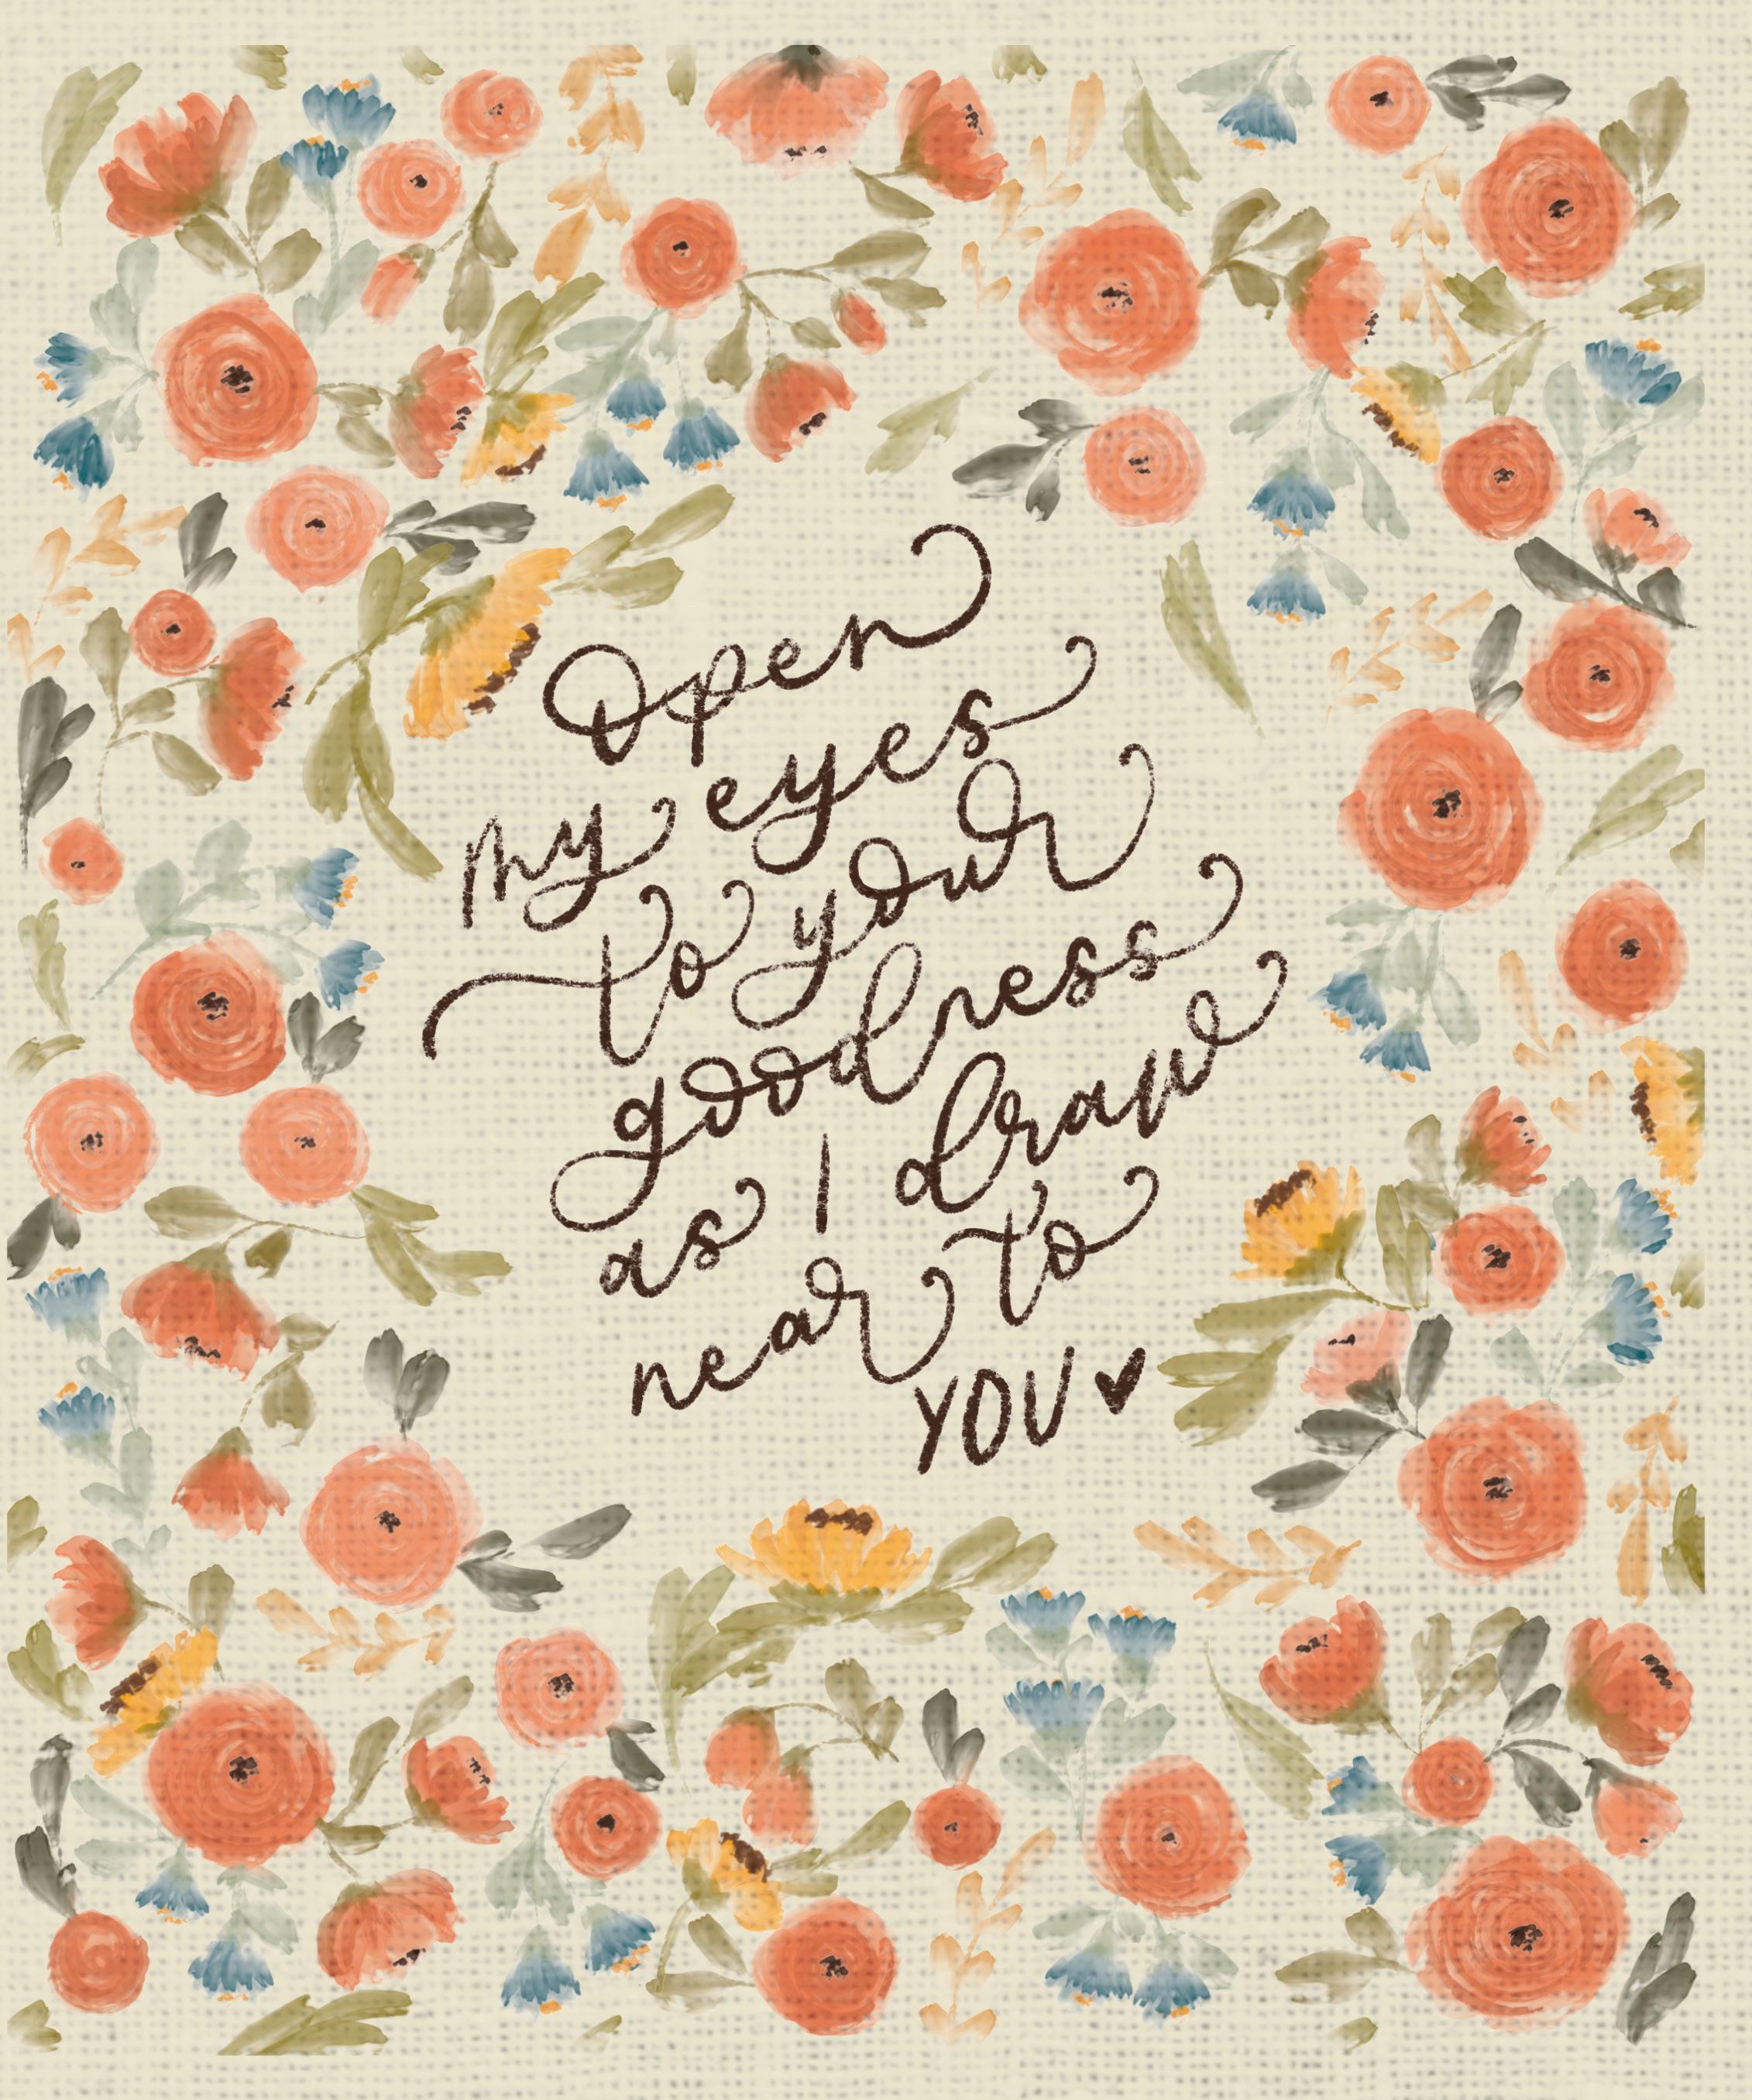 Open
my eyes
to your
goodness
as I draw
near to
YOU ♥